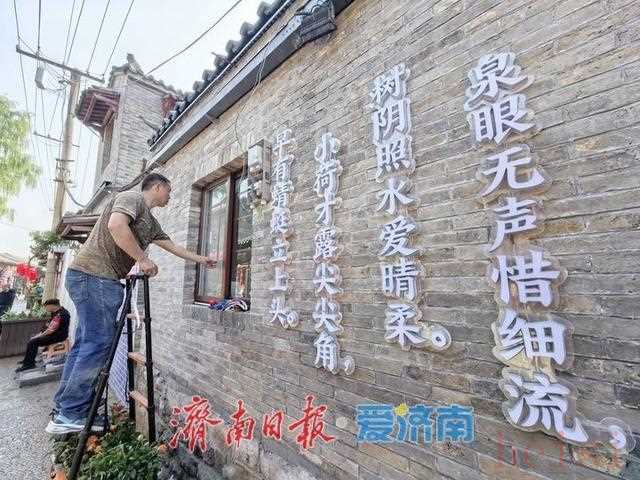 泉眼无声惜细流，
树阴照水爱晴柔。
小荷才露尖尖角，
早有蜻蜓立上头。
濟南日报
爱济南